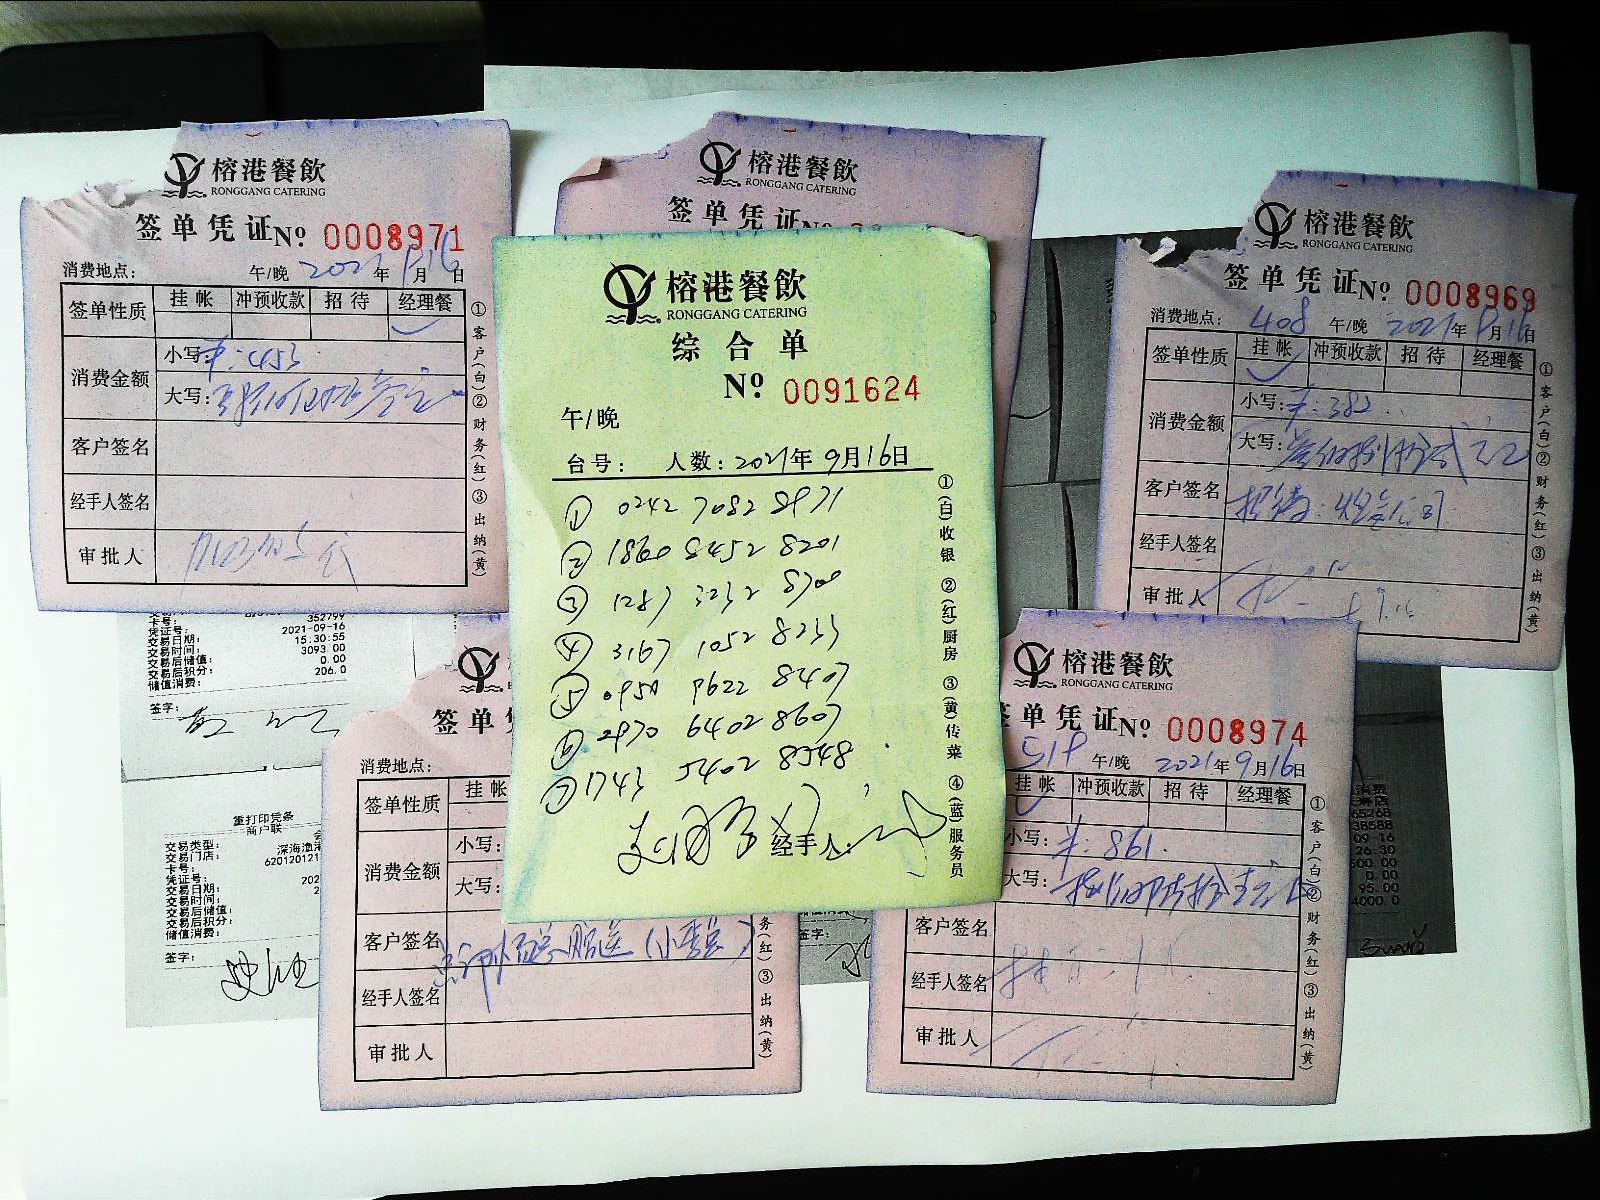 榕港餐飲
RONGGANG CATERING
签单凭证 No 0008971
消费地点: 午/晚 2021年9月16日
签单性质 挂帐 冲预收款 招待 经理餐
消费金额 小写: ¥:453
大写:
客户签名
经手人签名
审批人
①客户(白)②财务(红)③出纳(黄)
榕港餐飲
RONGGANG CATERING
签单凭证 No
榕港餐飲
RONGGANG CATERING
签单凭证 No 0008969
消费地点: 408 午/晚 2021年9月16日
签单性质 挂帐 冲预收款 招待 经理餐
消费金额 小写: ¥:382
大写:
客户签名
经手人签名
审批人
①客户(白)②财务(红)③出纳(黄)
榕港餐飲
RONGGANG CATERING
综合单
No 0091624
午/晚
台号: 人数: 2021年9月16日
① 0242 7082 8971
② 1860 8452 8201
③ 1287 3232 8700
④ 3167 1052 8233
⑤ 0950 9622 8407
⑥ 2970 6402 8607
⑦ 1743 5402 8548
经手人:
①(白)收银 ②(红)厨房 ③(黄)传菜 ④(蓝)服务员
卡号: 352799
凭证号: 2021-09-16
交易日期: 15:30:55
交易时间: 3093.00
交易后储值: 0.00
交易后积分: 206.0
储值消费:
签字:
重打印凭条
商户联
交易类型:
交易门店: 深海渔港
卡号: 620120121
凭证号:
交易日期: 202
交易时间:
交易后储值:
交易后积分:
储值消费:
签字:
签单
消费地点:
签单性质 挂帐
消费金额 小写:
大写:
客户签名
经手人签名
审批人
务(红)③出纳(黄)
签字:
榕港餐飲
RONGGANG CATERING
单凭证 No 0008974
午/晚 2021年9月16日
挂帐 冲预收款 招待 经理餐
小写: ¥:861.
大写:
客户签名
经手人签名
审批人
①客户(白)②财务(红)③出纳(黄)
消费
65268
38588
09-16
26:30
500.00
0.00
95.00
4000.0